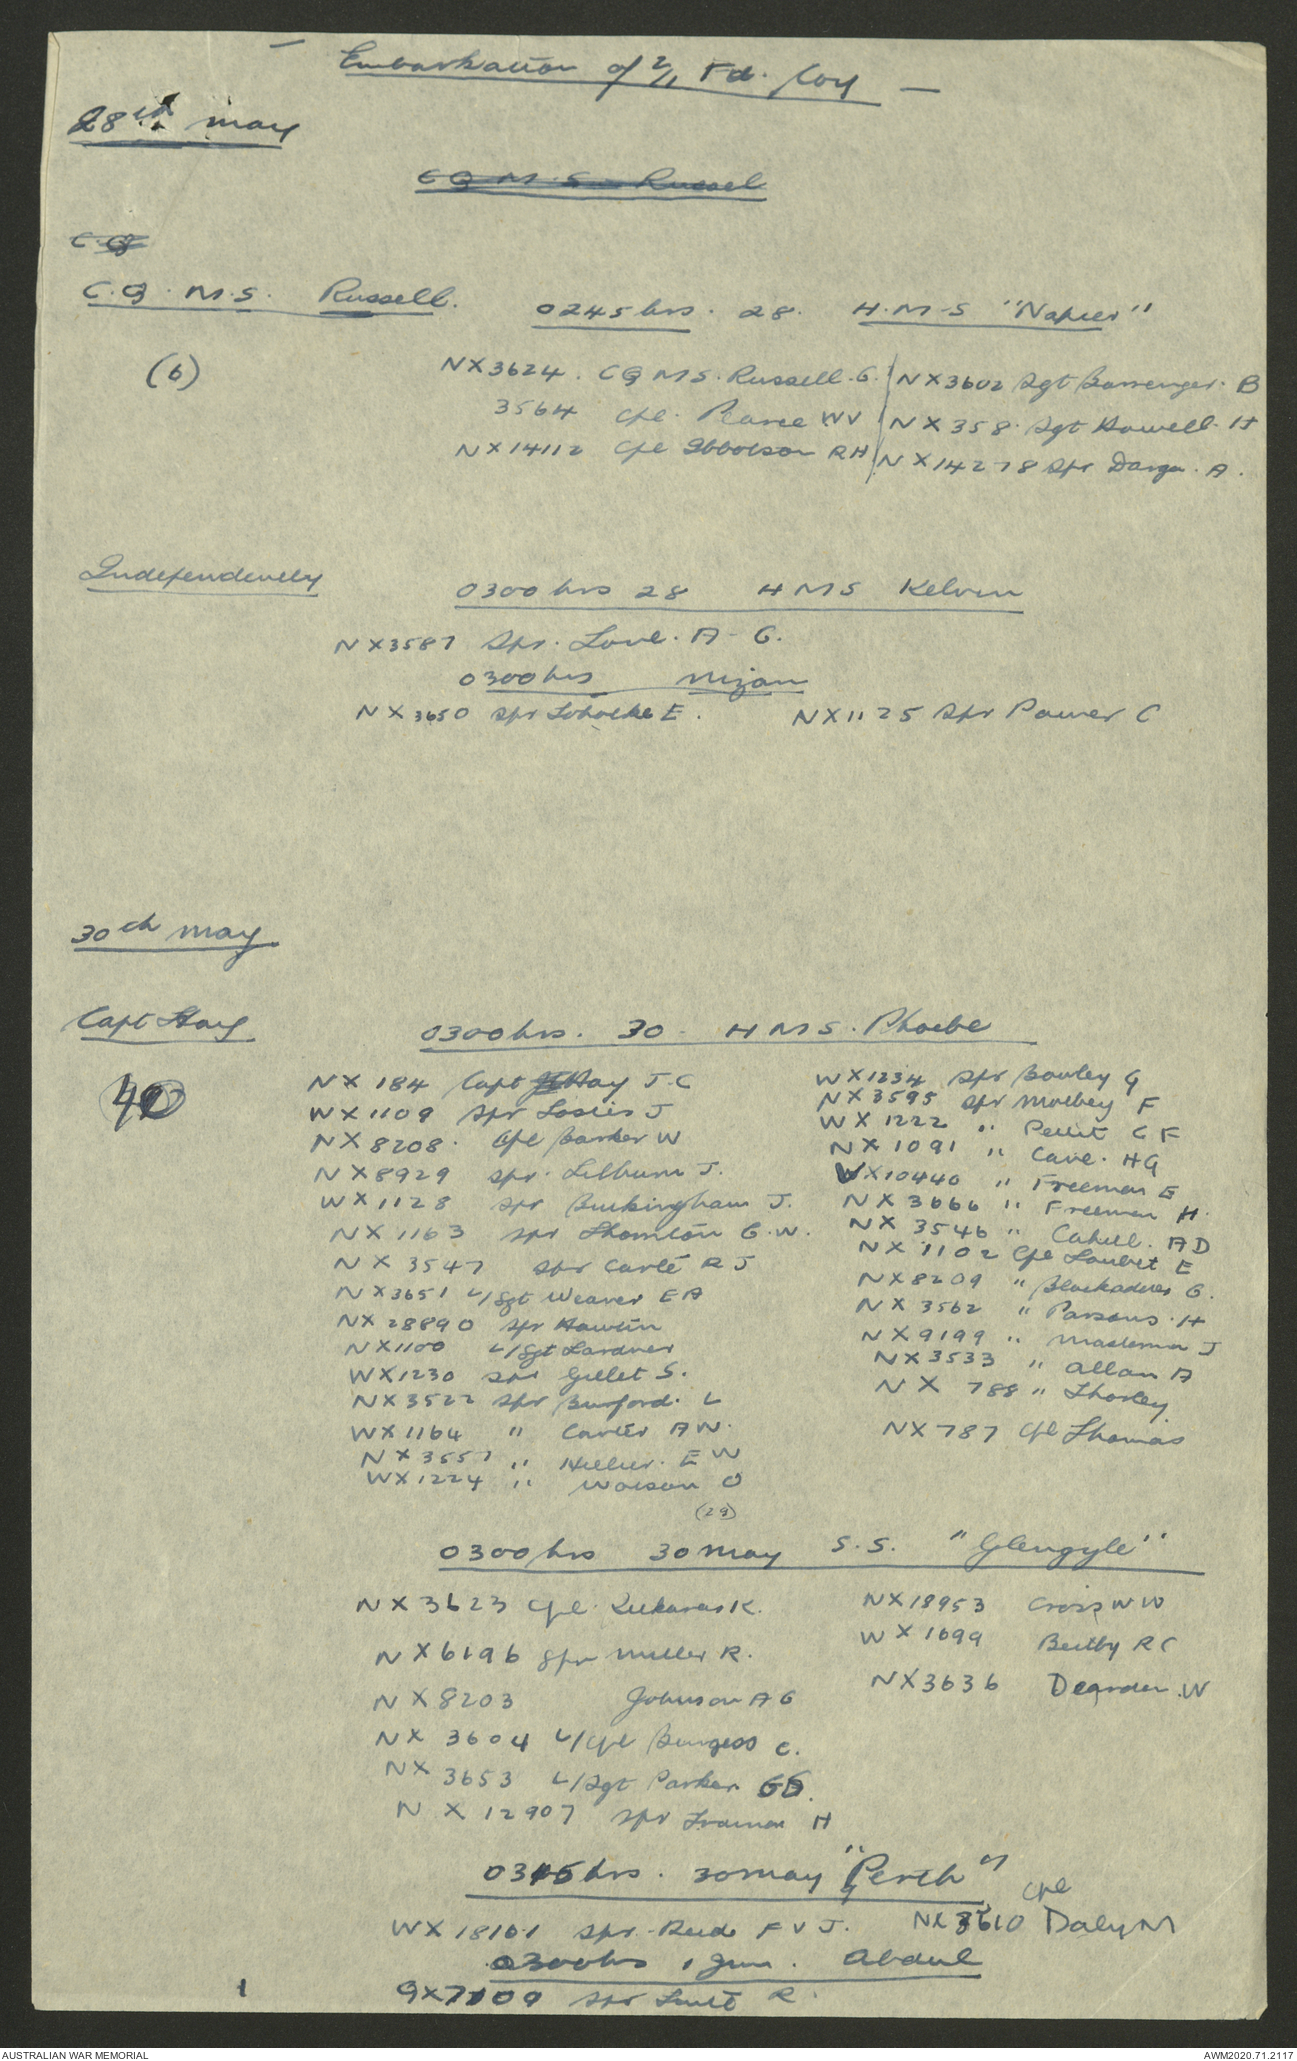 — Embarkation of 2/1 Fd. Coy —
28th May
C Q M S Russel
C. Q
C.Q.M.S. Russell. 0245 hrs. 28. H.M.S "Napier"
(6)
NX3624. CQMS. Russell. G. NX3602 Sgt Barrenger. B
3564 Cpl. Pearce WV NX358 Sgt Howell. H
NX14112 Cpl Ibbotson RH NX14278 Spr Darga. A.
Independently 0300 hrs 28 HMS Kelvin
NX3587 Spr. Love. A-G.
0300 hrs Nizam
NX3650 Spr E. NX1125 Spr Power C
30th May
Capt Hay 0300 hrs. 30 - HMS. Phoebe
40
NX 184 Capt Hay J.C WX1234 Spr Bowley G
WX1109 Spr Losies J NX3595 Spr Molbey F
NX8208. Cpl Barker W WX1222 " Pettit C F
NX8929 Spr. Lilburn J. NX1091 " Cave. HG
WX1128 Spr Buckingham J. VX10440 " Freeman E
NX1163 Spr Thornton G.W. NX3666 " Freeman H.
NX3547 Spr Carté R J NX 3546 " Cahill. AD
NX3651 L/Sgt Weaver EA NX1102 Cpl Loubet E
NX28890 Spr Hawtin NX8209 " G.
NX1100 L/Sgt Lardner NX3562 " Parsons. H
WX1230 Spr Gillet S. NX9199 " Masterman J
NX3522 Spr Burford. L NX3533 " Allan A
WX1164 " Carter AW. NX 788 " Thorley
NX3557 " Hillier. E W NX787 Cpl Thomas
WX1224 " Watson O
(29)
0300 hrs 30 May S.S. "Glengyle"
NX3623 Cpl. K. NX18953 Cross WW
NX6196 Spr Miller R. WX1699 Beitby RC
NX8203 Johnson AG NX3636 Dearden. W
NX 3604 L/Cpl Burgess C.
NX 3653 L/Sgt Parker
NX12907 Spr Framan H
0315 hrs. 30 May "Perth"
WX18161 Spr. Reid F V J. NX3610 Cpl Daly M
0300 hrs 1 Jun. Abdul
QX7109 Spr Smith R.
1
AUSTRALIAN WAR MEMORIAL AWM2020.71.2117